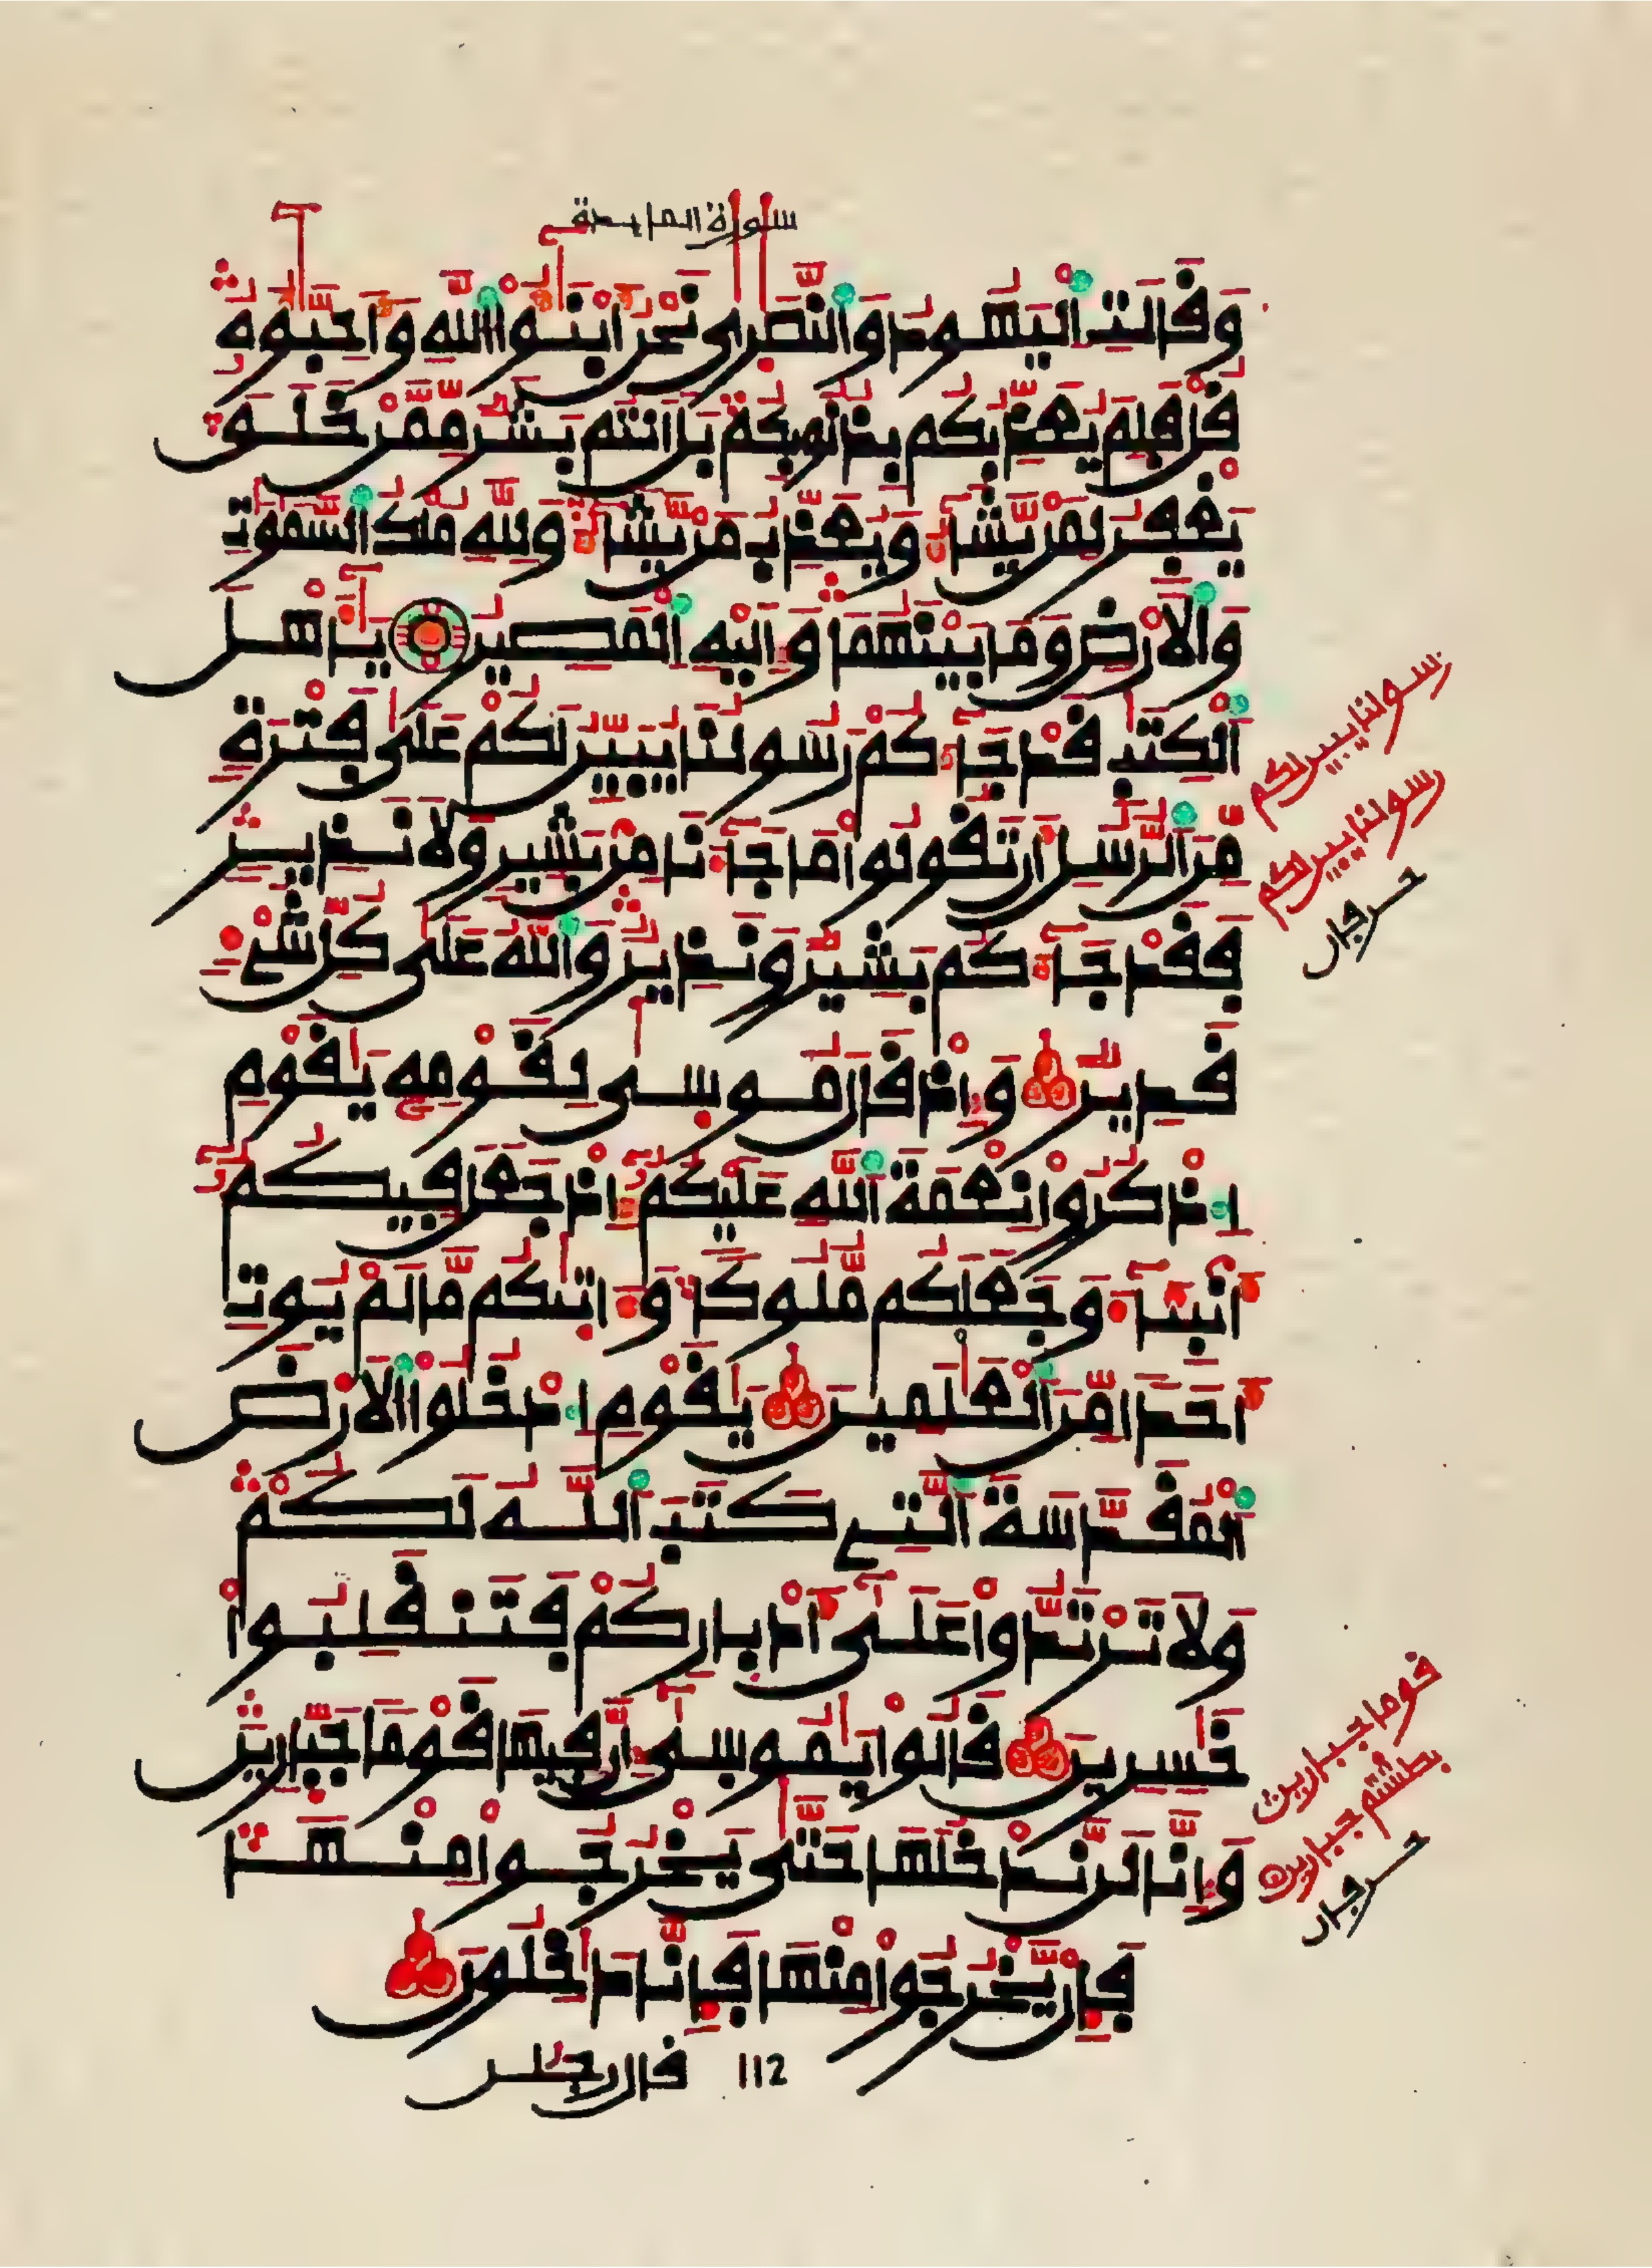 سورة المايدة
وَقَالَتِ اِ۬لْيَهُودُ وَالنَّصَٰرَىٰ نَحْنُ أَبْنَٰٓؤُاْ اللَّهِ وَأَحِبَّٰٓؤُهُۥ
قُلْ فَلِمَ يُعَذِّبُكُم بِذُنُوبِكُمۖ بَلْ أَنتُم بَشَرٌ مِّمَّنْ خَلَقَ
يَغْفِرُ لِمَنْ يَّشَآءُ وَيُعَذِّبُ مَنْ يَّشَآءُ وَلِلهِ مُلْكُ السَّمَٰوَٰتِ
وَالَارْضِ وَمَا بَيْنَهُمَا وَإِلَيْهِ اِ۬لْمَصِيرُ يَٰٓأَهْلَ
اَ۬لْكِتَٰبِ قَدْ جَآءَكُمْ رَسُولُنَا يُبَيِّنُ لَكُمْ عَلَىٰ فَتْرَةٍ
مِّنَ اَ۬لرُّسُلِ أَن تَقُولُواْ مَا جَآءَنَا مِنۢ بَشِيرٍ وَلَا نَذِيرٍ
فَقَدْ جَآءَكُم بَشِيرٌ وَنَذِيرٌ وَاللَّهُ عَلَىٰ كُلِّ شَےْءٍ
قَدِيرٌ وَإِذْ قَالَ مُوسَىٰ لِقَوْمِهِۦ يَٰقَوْمِ
اِ۟ذْكُرُواْ نِعْمَةَ اَ۬للَّهِ عَلَيْكُمُۥٓ إِذْ جَعَلَ فِيكُمُۥٓ
أَنۢبِئَآءَ وَجَعَلَكُم مُّلُوكاً وَءَاتَىٰكُم مَّا لَمْ يُوتِ
أَحَداً مِّنَ اَ۬لْعَٰلَمِينَ يَٰقَوْمِ اِ۟دْخُلُواْ الَارْضَ
اَ۬لْمُقَدَّسَةَ اَ۬لتِے كَتَبَ اَ۬للَّهُ لَكُمْ
وَلَا تَرْتَدُّواْ عَلَىٰٓ أَدْبَارِكُمْ فَتَنقَلِبُواْ
خَٰسِرِينَ قَالُواْ يَٰمُوسَىٰٓ إِنَّ فِيهَا قَوْماً جَبَّارِينَ
وَإِنَّا لَن نَّدْخُلَهَا حَتَّىٰ يَخْرُجُواْ مِنْهَا
فَإِنْ يَّخْرُجُواْ مِنْهَا فَإِنَّا دَٰخِلُونَ
112 قال رجلن
رسولنا يبين لكم
رسولنا يبين لكم
قوما جبارين
بطشتم جبارين